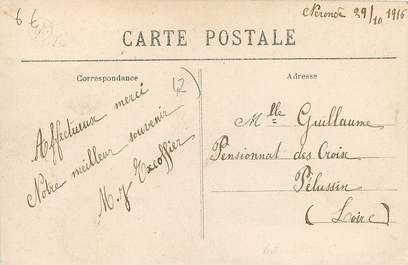 6 €
Néronde 29/10 1916
CARTE POSTALE
Correspondance
Adresse
12
Affectueux merci
Notre meilleur souvenir
M. J Excoffier
Mlle Guillaume
Pensionnat des Croix
Pélussin
(Loire)